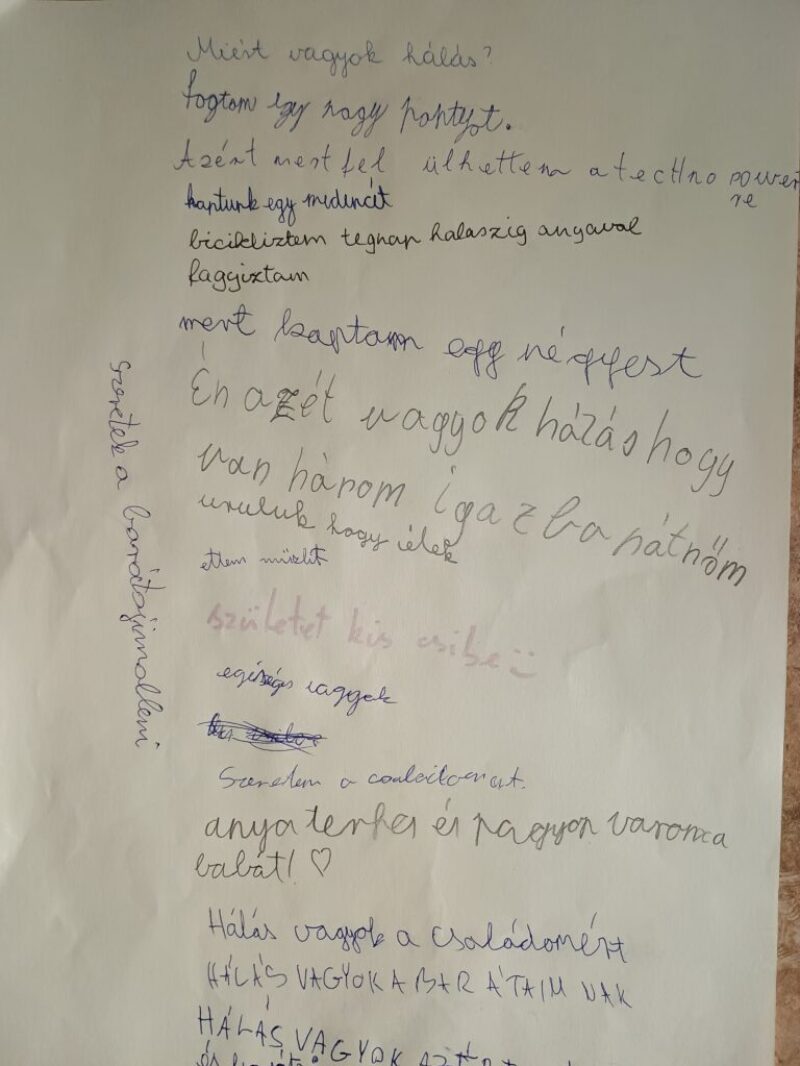 Miért vagyok hálás?
fogtam egy nagy pontyot.
Azért mert fel ülhettem a tecHno power
re
kaptunk egy medencét
bicikliztem tegnap halaszig anyával
fagyiztam
mert kaptam egy négyest
Én azét vagyok házás hogy
van három igaz ba rátnőm
hogy élek
ettem müzlit
születet kis csibe
egézségs vagyok
Szeretem a családomat.
anya terhes és nagyon varom a
babát! ♡
Hálás vagyok a családomért
HÁLÁS VAGYOK A BAR ÁTAIM NAK
HÁLÁS VAGYOK
szeretek a